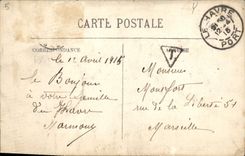 CARTE POSTALE
CORRESPONDANCE
LE HAVRE
PORT
T
le 1er Avril 1915
Monsieur
Le Bonjour
Montfort
à votre famille
rue de la Liberté 51
du Havre
Marseille